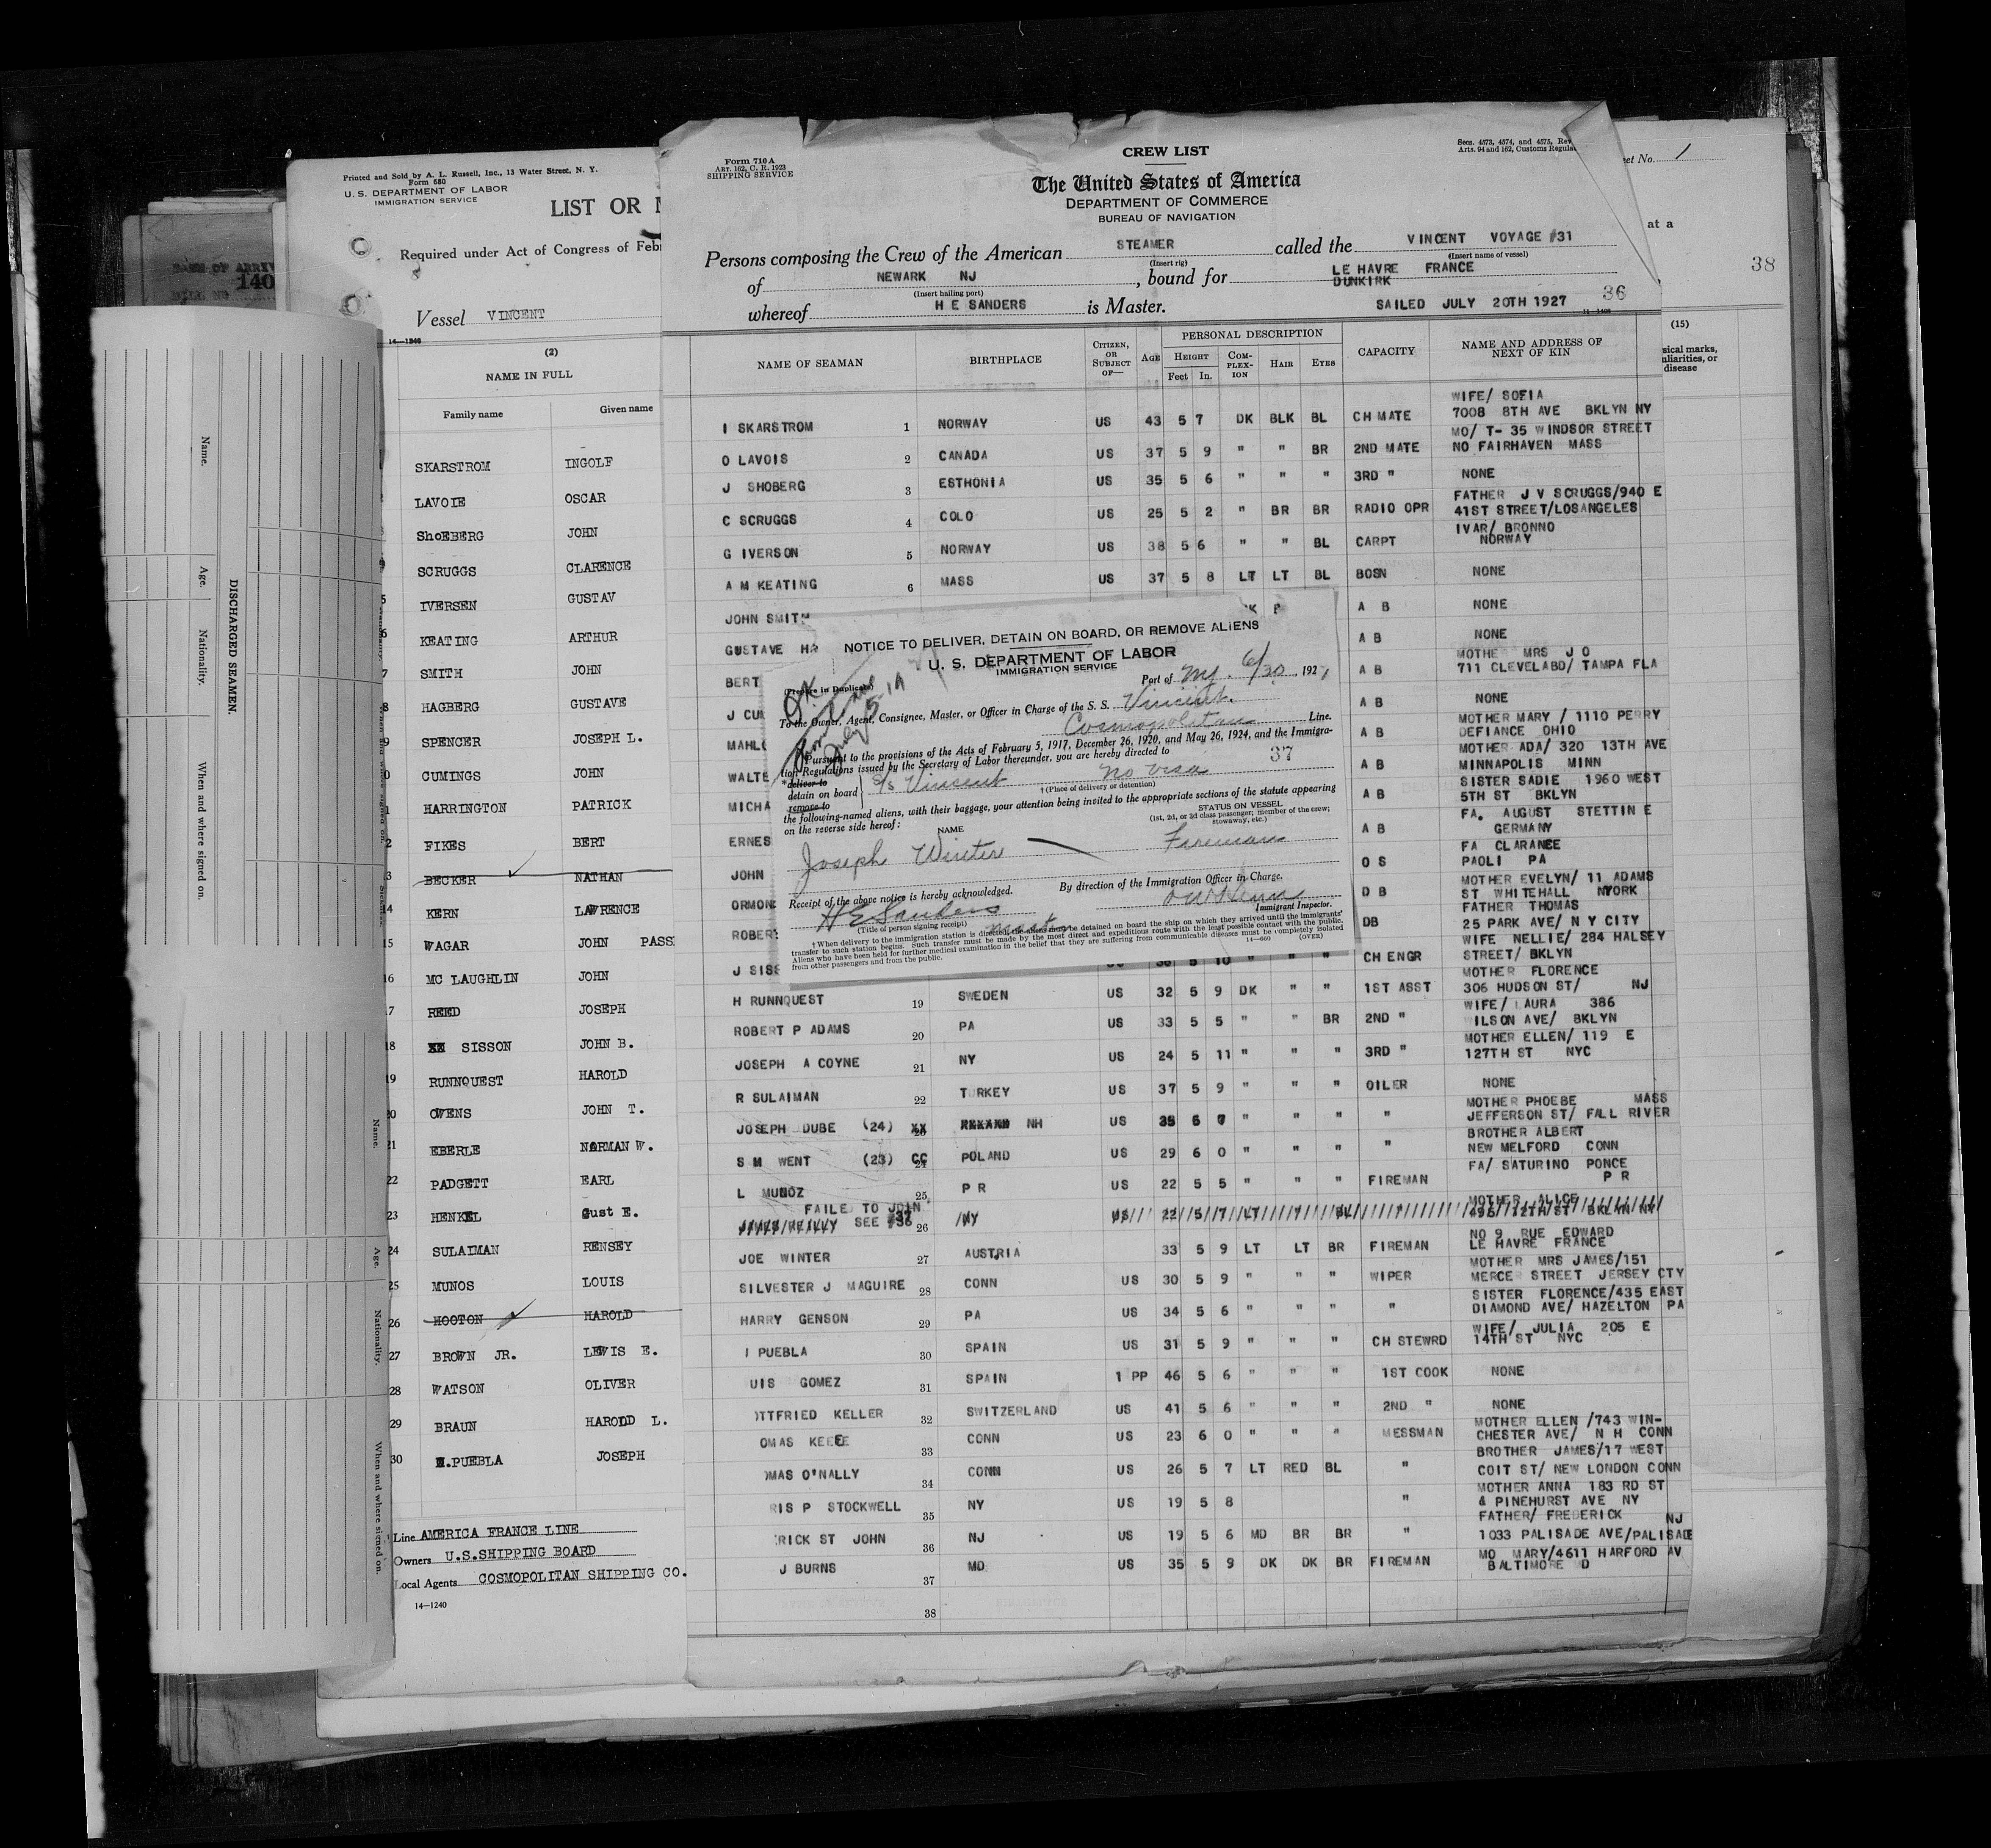 Printed and Sold by A. L. Russell, Inc., 13 Water Street, N. Y.
Form 680
U. S. DEPARTMENT OF LABOR
IMMIGRATION SERVICE
LIST OR
Required under Act of Congress of Feb
Vessel VINCENT
14—1240
(2)
NAME IN FULL
Family name Given name
SKARSTROM INGOLF
LAVOIE OSCAR
ShOEBERG JOHN
SCRUGGS CLARENCE
5 IVERSEN GUSTAV
6 KEATING ARTHUR
7 SMITH JOHN
8 HAGBERG GUSTAVE
9 SPENCER JOSEPH L.
0 CUMINGS JOHN
1 HARRINGTON PATRICK
2 FIKES BERT
3 BECKER NATHAN
14 KERN LAWRENCE
15 WAGAR JOHN PASS
16 MC LAUGHLIN JOHN
17 REED JOSEPH
18 XX SISSON JOHN B.
19 RUNNQUEST HAROLD
20 OWENS JOHN T.
21 EBERLE NORMAN W.
22 PADGETT EARL
23 HENKEL Gust E.
24 SULAIMAN RENSEY
25 MUNOS LOUIS
26 HOOTON HAROLD
27 BROWN JR. LEWIS E.
28 WATSON OLIVER
29 BRAUN HAROLD L.
30 PUEBLA JOSEPH
Line AMERICA FRANCE LINE
Owners U.S.SHIPPING BOARD
Local Agents COSMOPOLITAN SHIPPING CO.
14—1240
140
Name.
Age.
Nationality.
When and where signed on.
DISCHARGED SEAMEN.
Name.
Age.
Nationality.
When and where signed on.
Form 710A
ART. 162, C. R. 1923
SHIPPING SERVICE
CREW LIST
Secs. 4573, 4574, and 4575, Rev
Arts. 94 and 162, Customs Regula
The United States of America
DEPARTMENT OF COMMERCE
BUREAU OF NAVIGATION
Persons composing the Crew of the American STEAMER called the VINCENT VOYAGE #31
(Insert rig) (Insert name of vessel)
of NEWARK NJ, bound for LE HAVRE FRANCE
DUNKIRK
(Insert hailing port)
whereof H E SANDERS is Master. SAILED JULY 20TH 1927 36
NAME OF SEAMAN BIRTHPLACE CITIZEN, OR SUBJECT OF— AGE PERSONAL DESCRIPTION CAPACITY NAME AND ADDRESS OF NEXT OF KIN
HEIGHT COMPLEXION HAIR EYES
Feet In.
WIFE/ SOFIA
I SKARSTROM 1 NORWAY US 43 5 7 DK BLK BL CH MATE 7008 8TH AVE BKLYN NY
MO/ T- 35 WINDSOR STREET
O LAVOIS 2 CANADA US 37 5 9 " " BR 2ND MATE NO FAIRHAVEN MASS
J SHOBERG 3 ESTHONIA US 35 5 6 " " " 3RD " NONE
FATHER J V SCRUGGS/940 E
C SCRUGGS 4 COLO US 25 5 2 " BR BR RADIO OPR 41ST STREET/LOSANGELES
IVAR/ BRONNO
G IVERSON 5 NORWAY US 38 5 6 " " BL CARPT NORWAY
A M KEATING 6 MASS US 37 5 8 LT LT BL BOSN NONE
JOHN SMITH A B NONE
GUSTAVE HA A B NONE
MOTHE MRS J O
BERT A B 711 CLEVELABD/ TAMPA FLA
J CUM A B NONE
MOTHER MARY / 1110 PERRY
MAHLO A B DEFIANCE OHIO
MOTHER ADA/ 320 13TH AVE
WALTE A B MINNAPOLIS MINN
SISTER SADIE 1960 WEST
MICHA A B 5TH ST BKLYN
FA. AUGUST STETTIN E
ERNES A B GERMANY
FA CLARANCE
JOHN O S PAOLI PA
MOTHER EVELYN/ 11 ADAMS
ORMON D B ST WHITEHALL NYORK
FATHER THOMAS
ROBER DB 25 PARK AVE/ N Y CITY
WIFE NELLIE/ 284 HALSEY
J SISS 5 10 " " " CH ENGR STREET/ BKLYN
MOTHER FLORENCE
H RUNNQUEST 19 SWEDEN US 32 5 9 DK " " 1ST ASST 306 HUDSON ST/ NJ
WIFE/ LAURA 386
ROBERT P ADAMS 20 PA US 33 5 5 " " BR 2ND " WILSON AVE/ BKLYN
MOTHER ELLEN/ 119 E
JOSEPH A COYNE 21 NY US 24 5 11 " " " 3RD " 127TH ST NYC
R SULAIMAN 22 TURKEY US 37 5 9 " " " OILER NONE
MOTHER PHOEBE MASS
JOSEPH DUBE (24) XX NH US 35 6 " " " " JEFFERSON ST/ FALL RIVER
BROTHER ALBERT
S M WENT (23) CC 24 POLAND US 29 6 0 " " " " NEW MELFORD CONN
FA/ SATURINO PONCE
L MUNOZ 25 P R US 22 5 5 " " " FIREMAN P R
FAILED TO JOIN MOTHER ALICE
JAMES REILLY SEE #36 37 26 NY US 22 5 7 LT " BL " 496 12TH ST BKLYN NY
NO 9 RUE EDWARD
JOE WINTER 27 AUSTRIA 33 5 9 LT LT BR FIREMAN LE HAVRE FRANCE
MOTHER MRS JAMES/151
SILVESTER J MAGUIRE 28 CONN US 30 5 9 " " " WIPER MERCER STREET JERSEY CTY
SISTER FLORENCE/435 EAST
HARRY GENSON 29 PA US 34 5 6 " " " " DIAMOND AVE/ HAZELTON PA
WIFE/ JULIA 205 E
I PUEBLA 30 SPAIN US 31 5 9 " " " CH STEWRD 14TH ST NYC
UIS GOMEZ 31 SPAIN 1 PP 46 5 6 " " " 1ST COOK NONE
OTTFRIED KELLER 32 SWITZERLAND US 41 5 6 " " " 2ND " NONE
MOTHER ELLEN /743 WIN-
OMAS KEEFE 33 CONN US 23 6 0 " " " MESSMAN CHESTER AVE/ N H CONN
BROTHER JAMES/17 WEST
OMAS O'NALLY 34 CONN US 26 5 7 LT RED BL " COIT ST/ NEW LONDON CONN
MOTHER ANNA 183 RD ST
RIS P STOCKWELL 35 NY US 19 5 8 " & PINEHURST AVE NY
FATHER/ FREDERICK NJ
RICK ST JOHN 36 NJ US 19 5 6 MD BR BR " 1033 PALISADE AVE/PALISADE
MO MARY/4611 HARFORD AV
J BURNS 37 MD US 35 5 9 DK DK BR FIREMAN BALTIMORE MD
38
NOTICE TO DELIVER, DETAIN ON BOARD, OR REMOVE ALIENS
U. S. DEPARTMENT OF LABOR
IMMIGRATION SERVICE
(Prepare in Duplicate) Port of NY. 6/30, 1927
To the Owner, Agent, Consignee, Master, or Officer in Charge of the S. S. Vincent.
Cosmopolitan Line.
Pursuant to the provisions of the Acts of February 5, 1917, December 26, 1920, and May 26, 1924, and the Immigra-
tion Regulations issued by the Secretary of Labor thereunder, you are hereby directed to 37
*deliver to
detain on board S/S Vincent no visa
remove to †(Place of delivery or detention)
the following-named aliens, with their baggage, your attention being invited to the appropriate sections of the statute appearing
on the reverse side hereof:
NAME STATUS ON VESSEL
(1st, 2d, or 3d class passenger; member of the crew; stowaway, etc.)
Joseph Winter — Fireman
Receipt of the above notice is hereby acknowledged. By direction of the Immigration Officer in Charge.
H E Sanders
Immigrant Inspector.
(Title of person signing receipt) master
†When delivery to the immigration station is directed, the aliens must be detained on board the ship on which they arrived until the immigrants'
transfer to such station begins. Such transfer must be made by the most direct and expeditious route with the least possible contact with the public.
Aliens who have been held for further medical examination in the belief that they are suffering from communicable diseases must be completely isolated
from other passengers and from the public. 14—660 (OVER)
et No. 1
at a
38
(15)
sical marks,
uliarities, or
disease